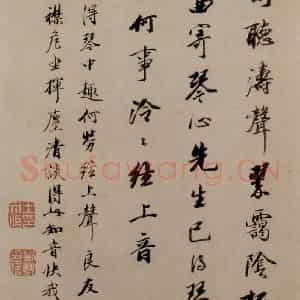 聽濤聲翠靄陰
寄琴心先生已得
何事泠〻絃上音
得琴中趣何勞絃上聲良友
襟危坐揮麈清談得知音快我
Shufawang.CN